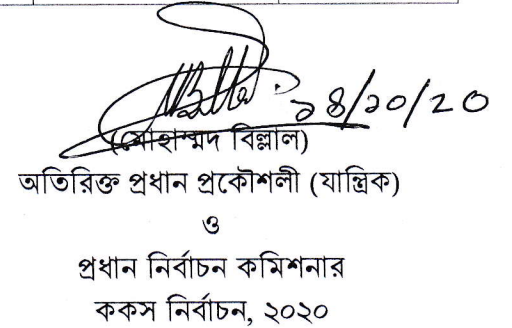 ১৪/১০/২০
(মোহাম্মদ বিল্লাল)
অতিরিক্ত প্রধান প্রকৌশলী (যান্ত্রিক)
ও
প্রধান নির্বাচন কমিশনার
ককস নির্বাচন, ২০২০